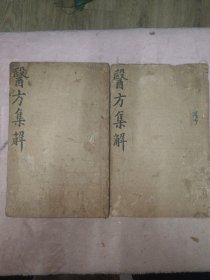 醫方集解
醫方集解